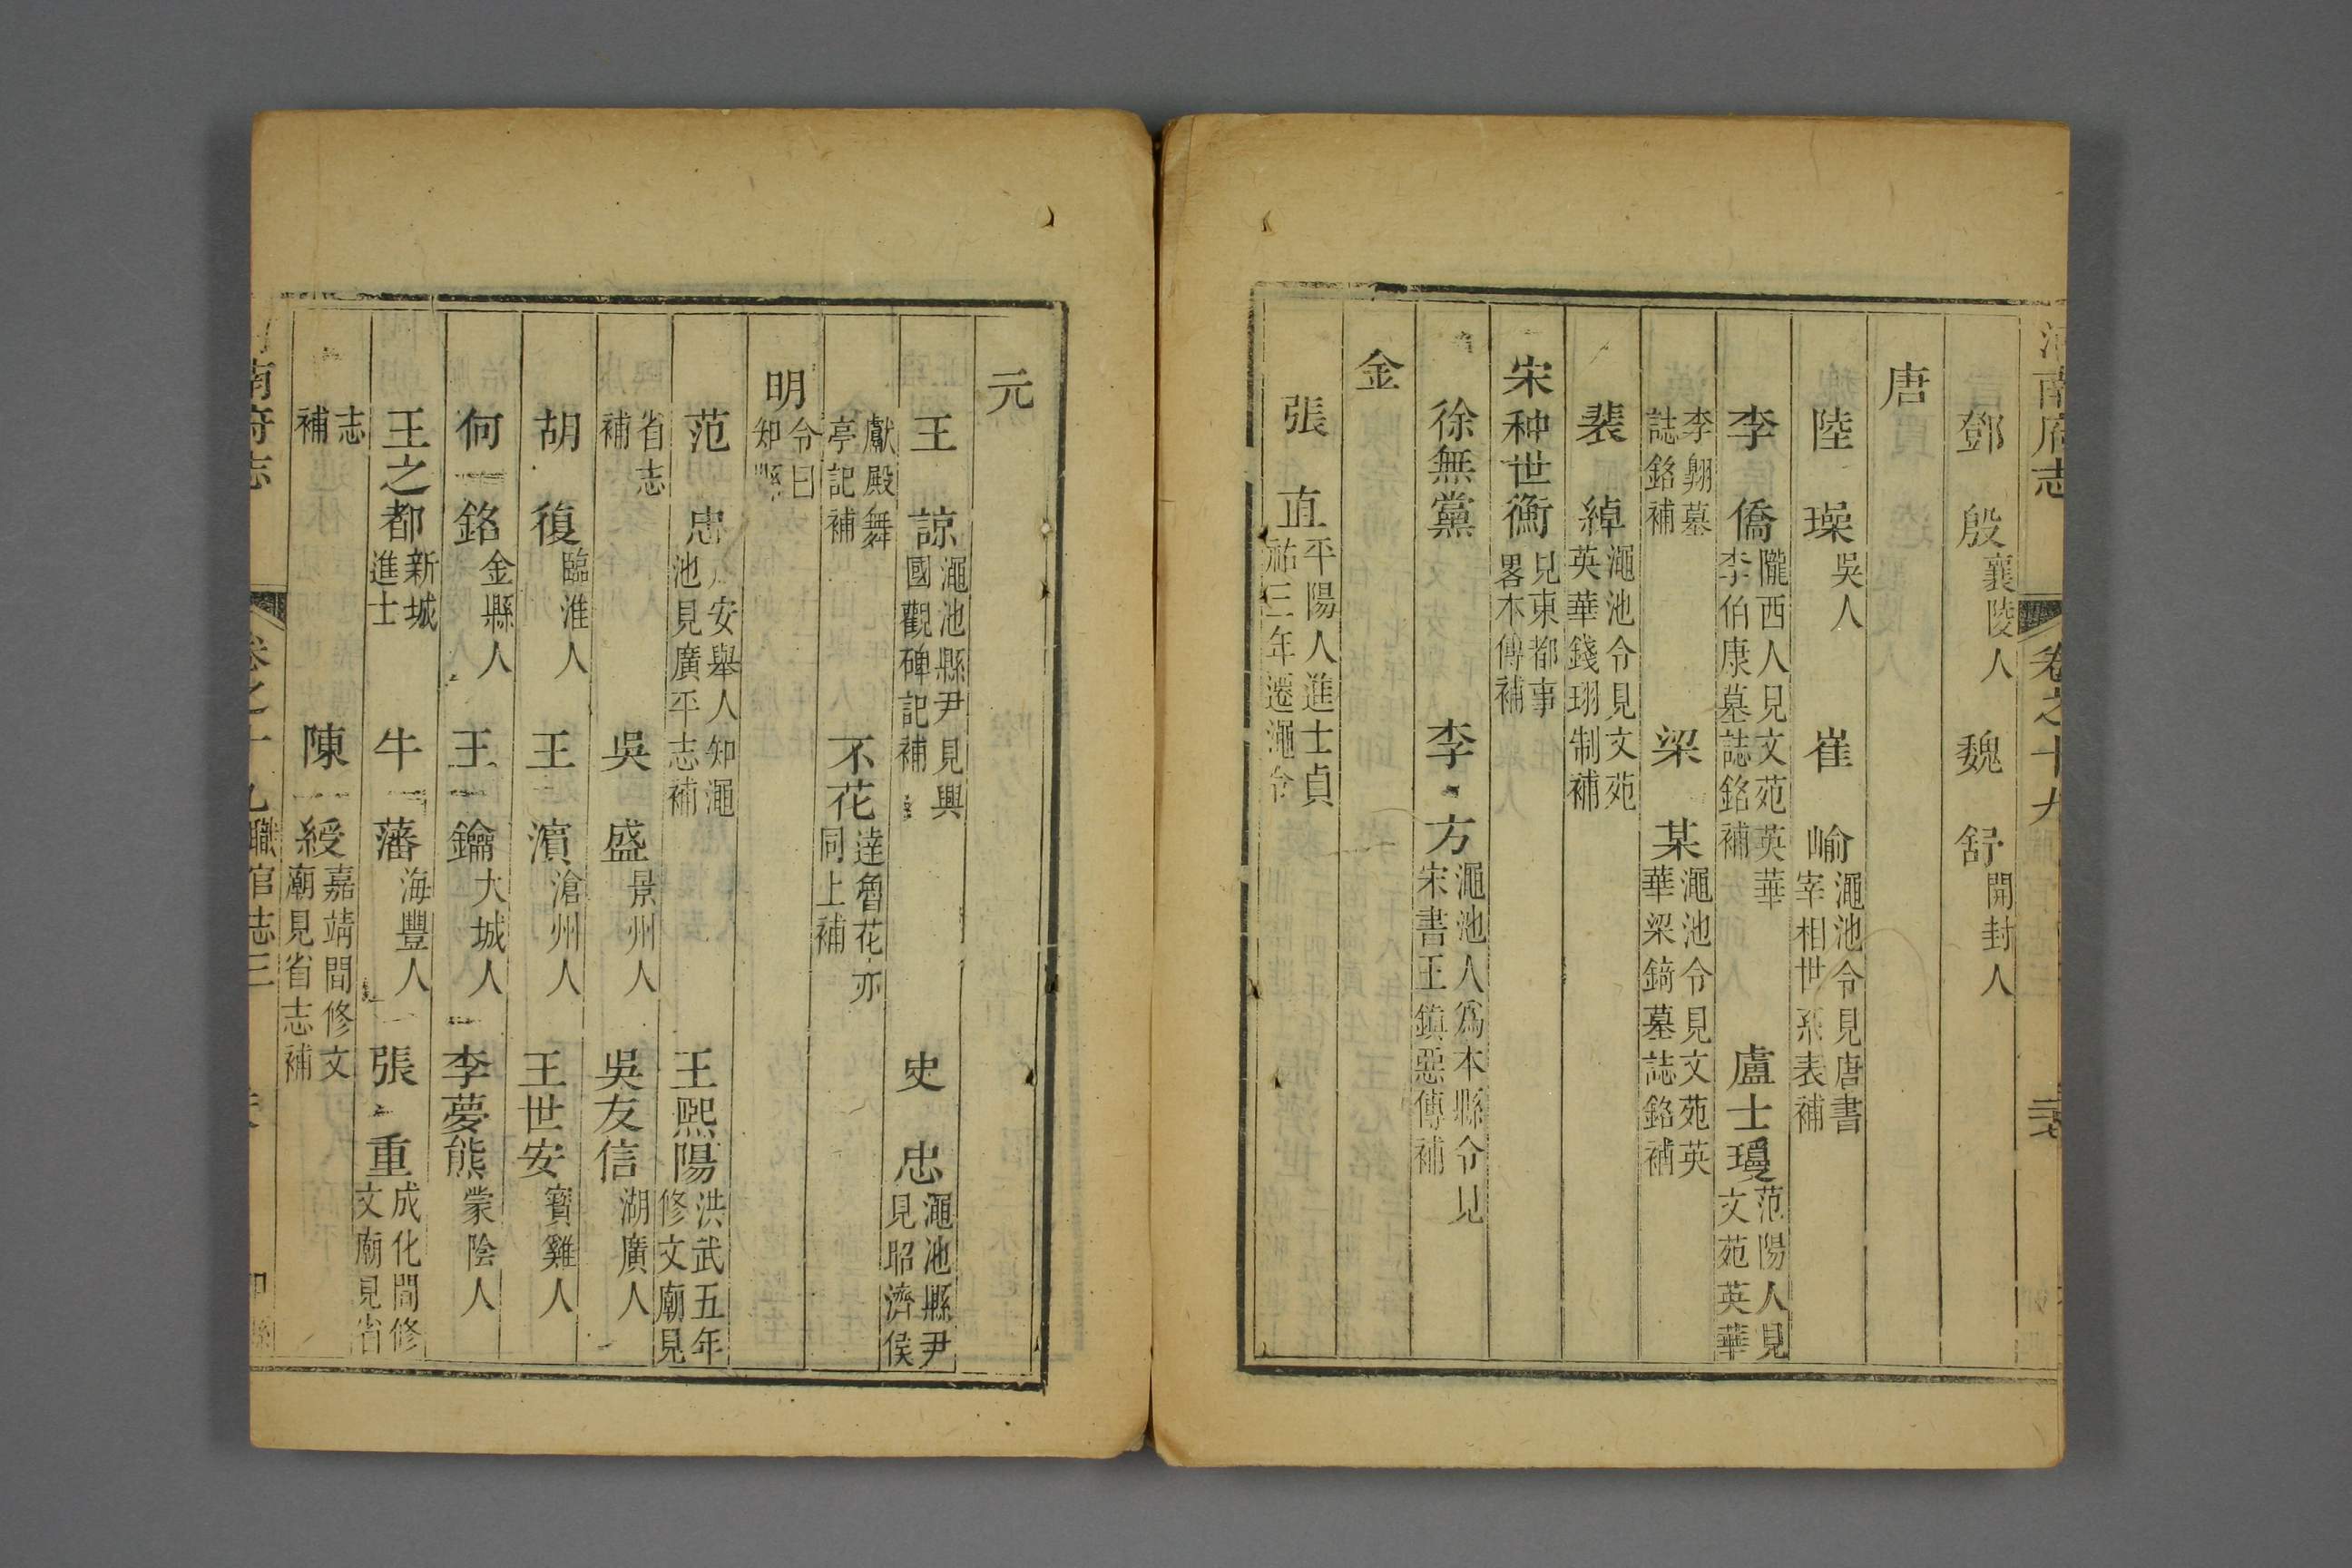 河南府志 卷之十九
鄧殷襄陵人 魏舒開封人
唐
陸璪吳人 崔崳澠池令見唐書宰相世系表補
李僑隴西人見文苑英華李伯康墓誌銘補 盧士瓊范陽人見文苑英華
李翺墓誌銘補 梁某澠池令見文苑英華梁鏑墓誌銘補
裴綽澠池令見文苑英華錢珝制補
宋种世衡見東都事畧本傳補
徐無黨 李方澠池人爲本縣令見宋書王鎮惡傳補
金
張直平陽人進士貞祐三年遷澠令
元
王諒澠池縣尹見興國觀碑記補 史忠澠池縣尹見昭濟侯
獻殿舞亭記補 不花達魯花亦同上補
明令曰知縣
范忠安舉人知澠池見廣平志補 王熙陽洪武五年修文廟見
省志補 吳盛景州人 吳友信湖廣人
胡復臨淮人 王濵滄州人 王世安寶雞人
何銘金縣人 王鑰大城人 李夢熊蒙陰人
王之都新城進士 牛藩海豐人 張重成化間修文廟見省
志補 陳綬嘉靖間修文廟見省志補
南府志 卷之十九職官志三